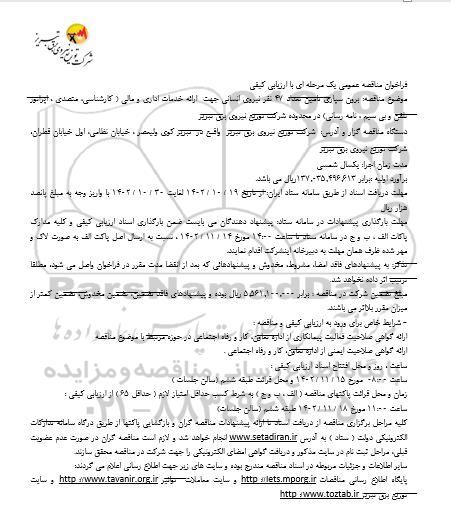 شرکت توزیع نیروی برق تبریز
فراخوان مناقصه عمومی یک مرحله ای با ارزیابی کیفی
موضوع مناقصه: برون سپاری تامین تعداد ۴۷ نفر نیروی انسانی جهت ارائه خدمات اداری و مالی ( کارشناسی، متصدی ، اپراتور
تلفن و بی سیم ، نامه رسانی) در محدوده شرکت توزیع نیروی برق تبریز
دستگاه مناقصه گزار و آدرس: شرکت توزیع نیروی برق تبریز واقع در تبریز کوی ولیعصر ، خیابان نظامی، اول خیابان قطران،
شرکت توزیع نیروی برق تبریز
مدت زمان اجرا: یکسال شمسی
برآورد اولیه :برابر ۱۳۷،۰۳۵،۴۹۶،۶۱۳ ریال می باشد.
مهلت دریافت اسناد از طریق سامانه ستاد ایران: از تاریخ ۱۹ / ۱۰ / ۱۴۰۲ لغایت ۳۰ / ۱۰ / ۱۴۰۲ با واریز وجه به مبلغ پانصد
هزار ریال
مهلت بارگذاری پیشنهادات در سامانه ستاد: پیشنهاد دهندگان می بایست ضمن بارگذاری اسناد ارزیابی کیفی و کلیه مدارک
پاکات الف ، ب و ج در سامانه ستاد تا ساعت ۱۴:۰۰ مورخ ۱۴ / ۱۱ / ۱۴۰۲ ، نسبت به ارسال اصل پاکت الف به صورت لاک و
مهر شده ظرف همان مهلت به دبیرخانه اینشرکت اقدام نمایند.
تذکر: به پیشنهادهای فاقد امضاء، مشروط، مخدوش و پیشنهادهائی که بعد از انقضا مدت مقرر در فراخوان واصل می شود، مطلقا
ترتیب اثر داده نخواهد شد.
مبلغ تضمین شرکت در مناقصه : برابر ۵،۵۶۱،۱۰۰،۰۰۰ ریال بوده و پیشنهادهای فاقد تضمین، تضمین مخدوش، تضمین کمتر از
میزان مقرر بلااثر می باشند.
- شرایط خاص برای ورود به ارزیابی کیفی و مناقصه :
ارائه گواهی صلاحیت فعالیت پیمانکاری از اداره تعاون، کار و رفاه اجتماعی در حوزه مرتبط با موضوع مناقصه
ارائه گواهی صلاحیت ایمنی از اداره تعاون، کار و رفاه اجتماعی .
ساعت ، روز و محل افتتاح اسناد ارزیابی کیفی :
ساعت ۰۸:۰۰ مورخ ۱۵ / ۱۱ / ۱۴۰۲ و محل قرائت طبقه ششم (سالن جلسات )
زمان و محل قرائت پاکتهای مناقصه ( الف ، ب و ج ) به شرط کسب حداقل امتیاز لازم ( حداقل ۶۵ ) از ارزیابی کیفی :
ساعت ۱۱:۰۰ مورخ ۱۸ / ۱۱ / ۱۴۰۲ طبقه ششم (سالن جلسات)
کلیه مراحل برگزاری مناقصه از دریافت اسناد تا ارائه پیشنهادات مناقصه گران و بازگشایی پاکتها از طریق درگاه سامانه تدارکات
الکترونیکی دولت ( ستاد ) به آدرس www.setadiran.ir انجام خواهد شد و لازم است مناقصه گران در صورت عدم عضویت
قبلی، مراحل ثبت نام در سایت مذکور و دریافت گواهی امضای الکترونیکی را جهت شرکت در مناقصه محقق سازند.
سایر اطلاعات و جزئیات مربوطه در اسناد مناقصه مندرج بوده و سایت های زیر جهت اطلاع رسانی اعلام می گردند:
پایگاه اطلاع رسانی مناقصات http://iets.mporg.ir و سایت معاملات توانیر http://www.tavanir.org.ir و سایت
توزیع برق تبریز http://www.toztab.ir